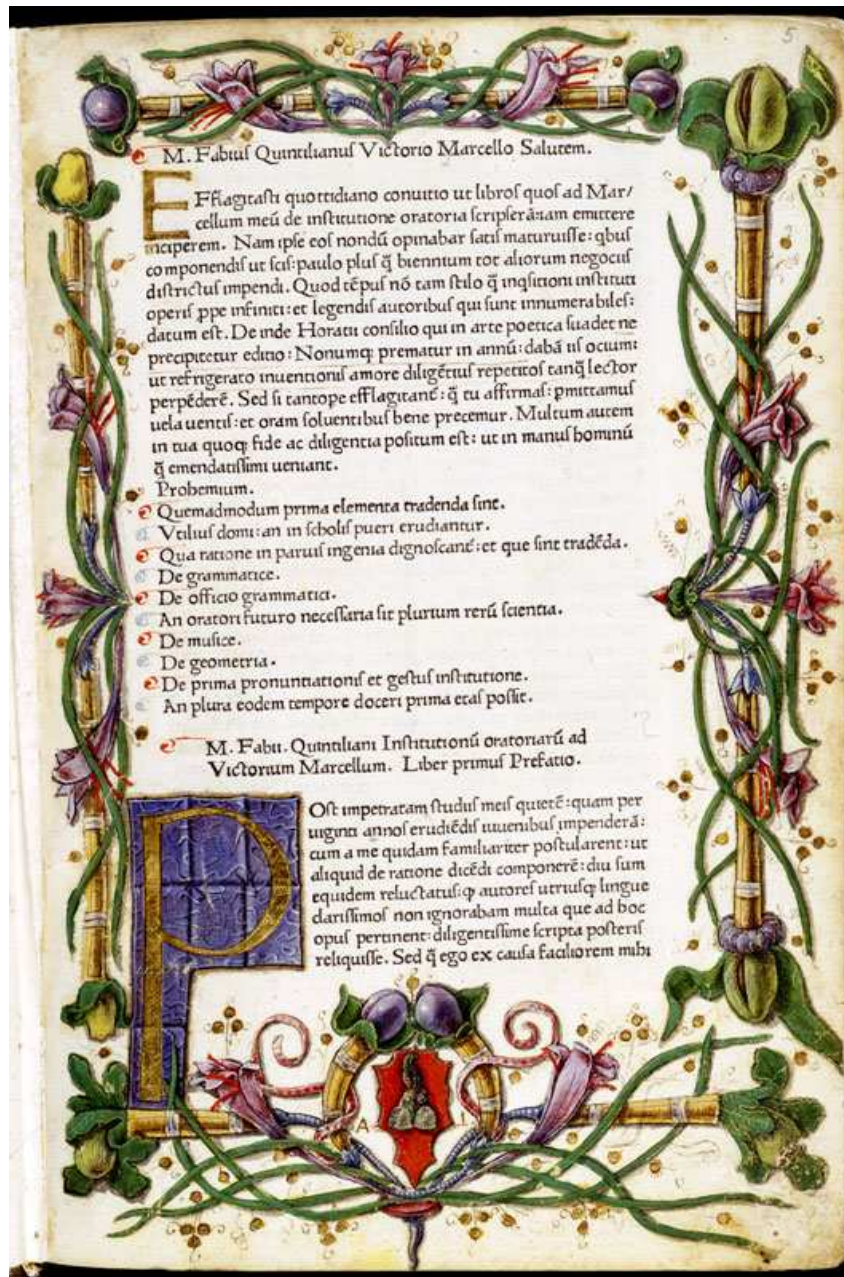 5
M. Fabius Quintilianus Victorio Marcello Salutem.
EFflagitasti quottidiano conuitio ut libros quos ad Mar/
cellum meū de institutione oratoria scripserā: iam emittere
inciperem. Nam ipse eos nondū opinabar satis maturuisse: qbus
componendis ut scis: paulo plus q̄ biennium tot aliorum negociis
districtus impendi. Quod tēpus nō tam stilo q̄ inqsitioni instituti
operis ppe infiniti: et legendis autoribus qui sunt innumerabiles:
datum est. De inde Horatii consilio qui in arte poetica suadet ne
precipitetur editio: Nonumq; prematur in annū: dabā iis ocium:
ut refrigerato inuentionis amore diligētius repetitos tanq̄ lector
perpēderē. Sed si tantope efflagitant̄: q̄ tu affirmas: pmittamus
uela uentis: et oram soluentibus bene precemur. Multum autem
in tua quoq; fide ac diligentia positum est: ut in manus hominū
q̄ emendatissimi ueniant.
Prohemium.
Quemadmodum prima elementa tradenda sint.
Vtilius domi: an in scholis pueri erudiantur.
Qua ratione in paruis ingenia dignoscant̄: et que sint tradēda.
De grammatice.
De officio grammatici.
An oratori futuro necessaria sit plurium rerū scientia.
De musice.
De geometria.
De prima pronuntiationis et gestus institutione.
An plura eodem tempore doceri prima etas possit.
M. Fabii. Quintiliani Institutionū oratoriarū ad
Victorium Marcellum. Liber primus Prefatio.
POst impetratam studiis meis quietē: quam per
uiginti annos erudiēdis iuuenibus impenderā:
cum a me quidam familiariter postularent: ut
aliquid de ratione dicēdi componerē: diu sum
equidem reluctatus: ꝙ autores utriusq; lingue
clarissimos non ignorabam multa que ad hoc
opus pertinent: diligentissime scripta posteris
reliquisse. Sed q̄ ego ex causa faciliorem mihi